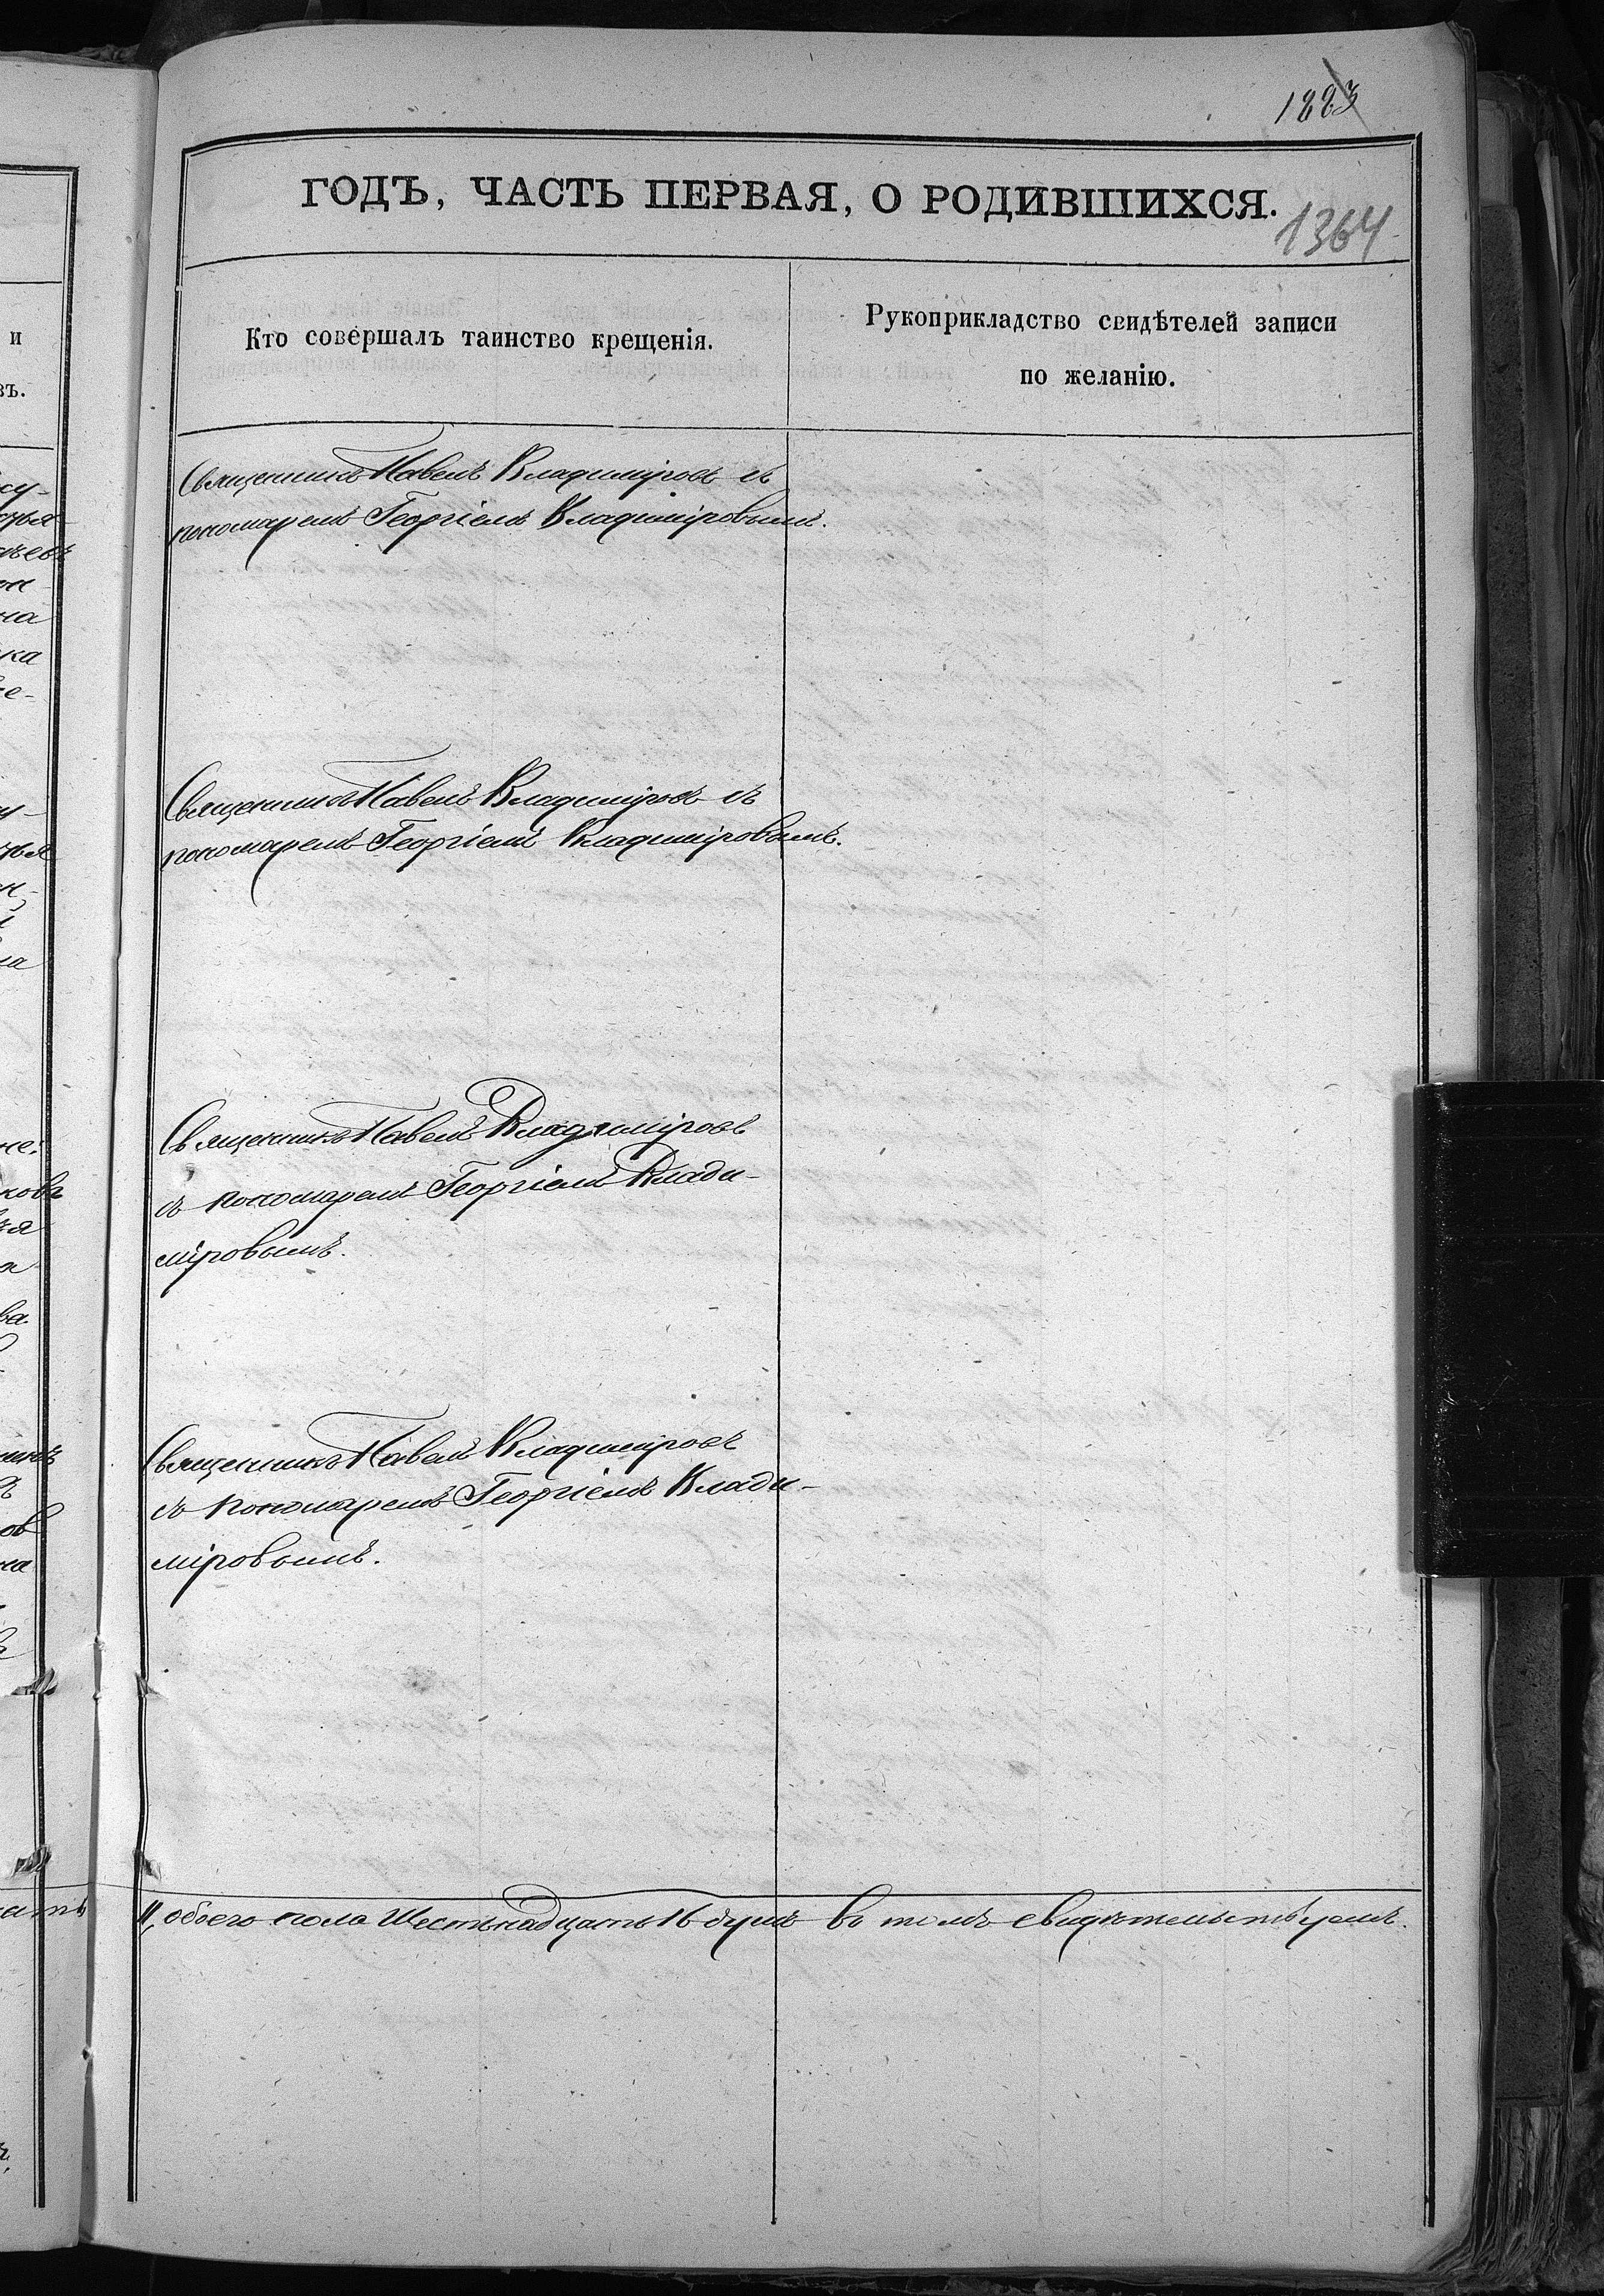 1223
ГОДЪ, ЧАСТЬ ПЕРВАЯ, О РОДИВШИХСЯ.
1364
Кто совершалъ таинство крещенія.
Рукоприкладство свидѣтелей записи
по желанію.
Священникъ Павелъ Владиміровъ съ
пономаремъ Георгіемъ Владиміровымъ.
Священникъ Павелъ Владиміровъ съ
пономаремъ Георгіемъ Владиміровымъ.
Священникъ Павелъ Владиміровъ
съ пономаремъ Георгіемъ Влади-
міровымъ.
Священникъ Павелъ Владиміровъ
съ пономаремъ Георгіемъ Влади-
міровымъ.
11, обоего пола Шестьнадцать 16 душъ во томъ свидѣтельствуемъ.